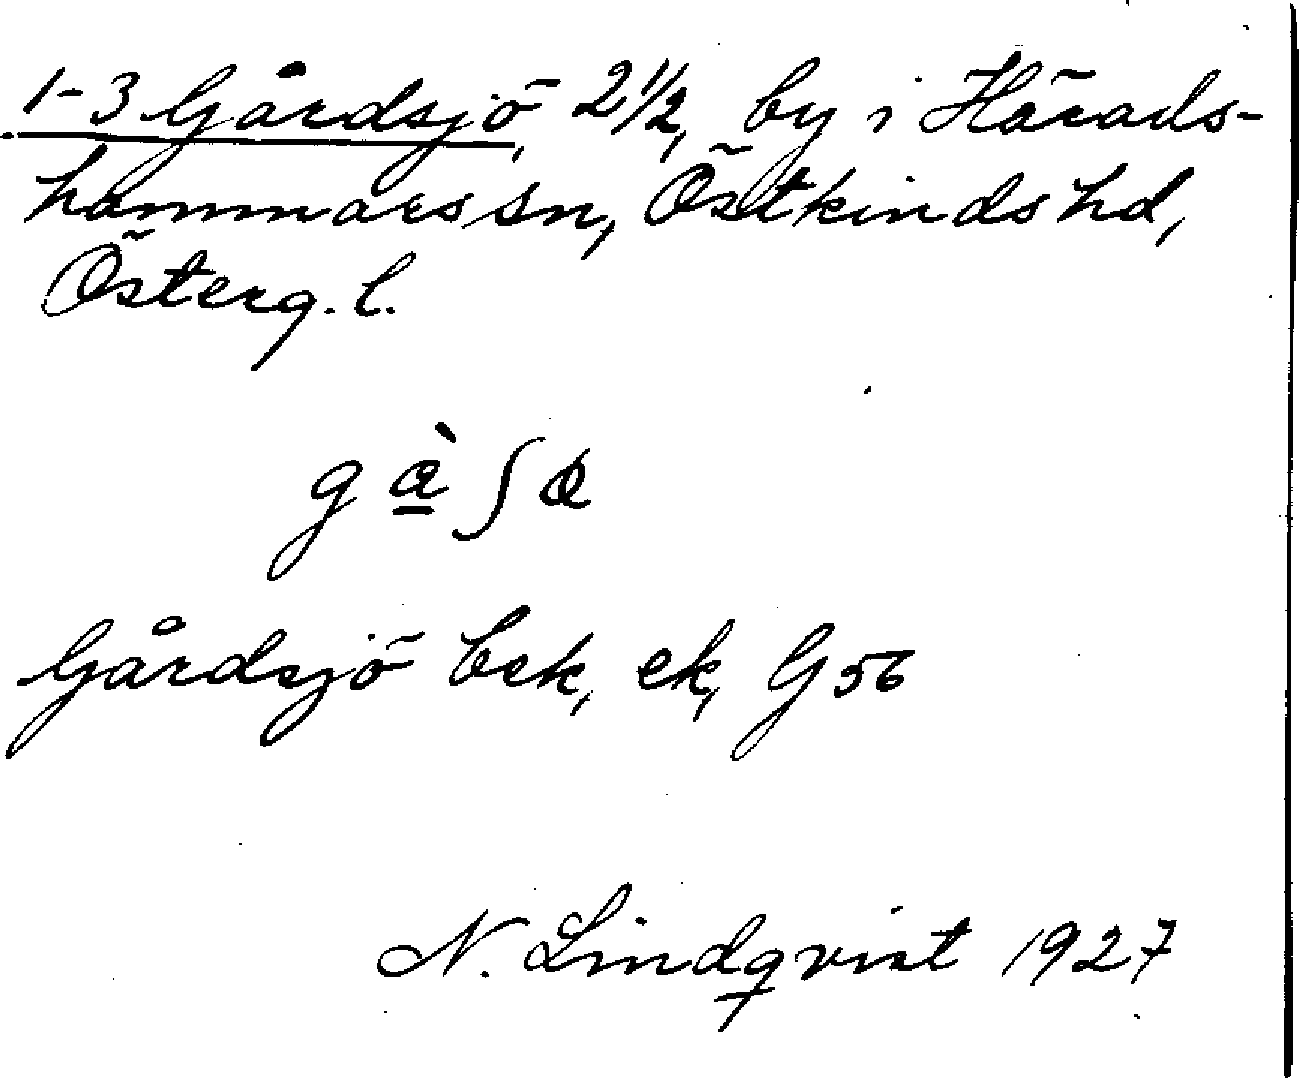 1-3 Gårdsjö, 2½, by i Härads-
hammars sn, Östkinds hd,
Österg. l.
Gårdsjö bek, ek, G 56
N. Lindqvist 1927